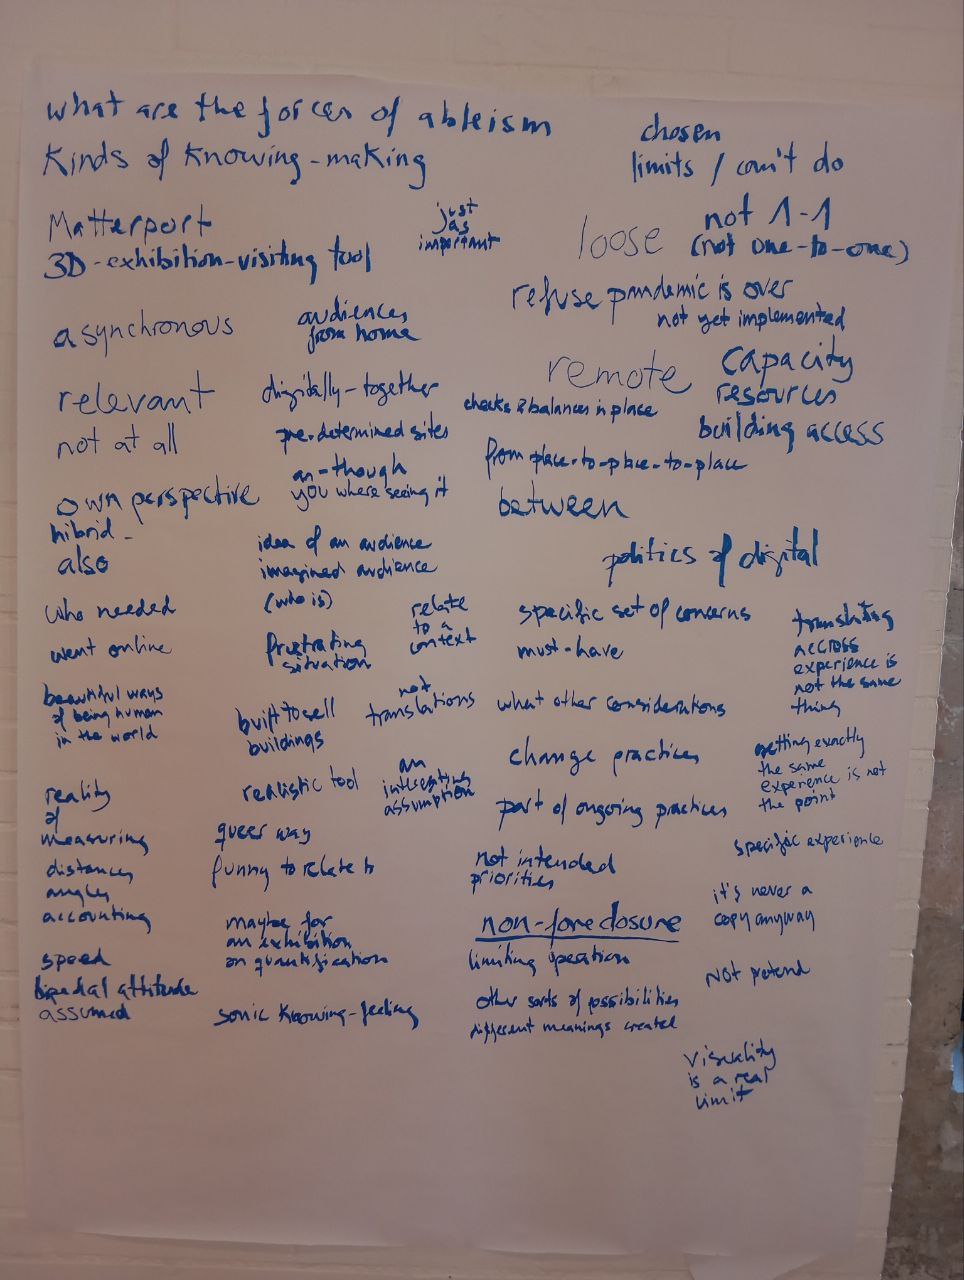 what are the forces of ableism
Kinds of knowing-making
chosen
limits / can't do
Matterport
3D-exhibition-visiting tool
just
as
important
loose
not 1-1
(not one-to-one)
refuse pandemic is over
not yet implemented
asynchronous
audiences
from home
remote
capacity
resources
building access
relevant
not at all
digitally-together
pre-determined sites
checks & balances in place
from place-to-place-to-place
between
own perspective
as-though
you where seeing it
hibrid-
also
idea of an audience
imagined audience
(who is)
politics of digital
who needed
went online
frustrating
situation
relate
to a
context
specific set of concerns
must-have
translating
accross
experience is
not the same
thing
beautiful ways
of being human
in the world
built to sell
buildings
not
translations
what other considerations
change practices
getting exactly
the same
experience is not
the point
reality
of
measuring
distances
angles
accounting
realistic tool
an
interesting
assumption
part of ongoing practices
queer way
funny to relate to
not intended
priorities
specific experience
it's never a
copy anyway
maybe for
an exhibition
on quantification
non-foreclosure
limiting operation
speed
bipedal attitude
assumed
sonic knowing-feeling
other sorts of possibilities
different meanings created
Not pretend
visuality
is a real
limit